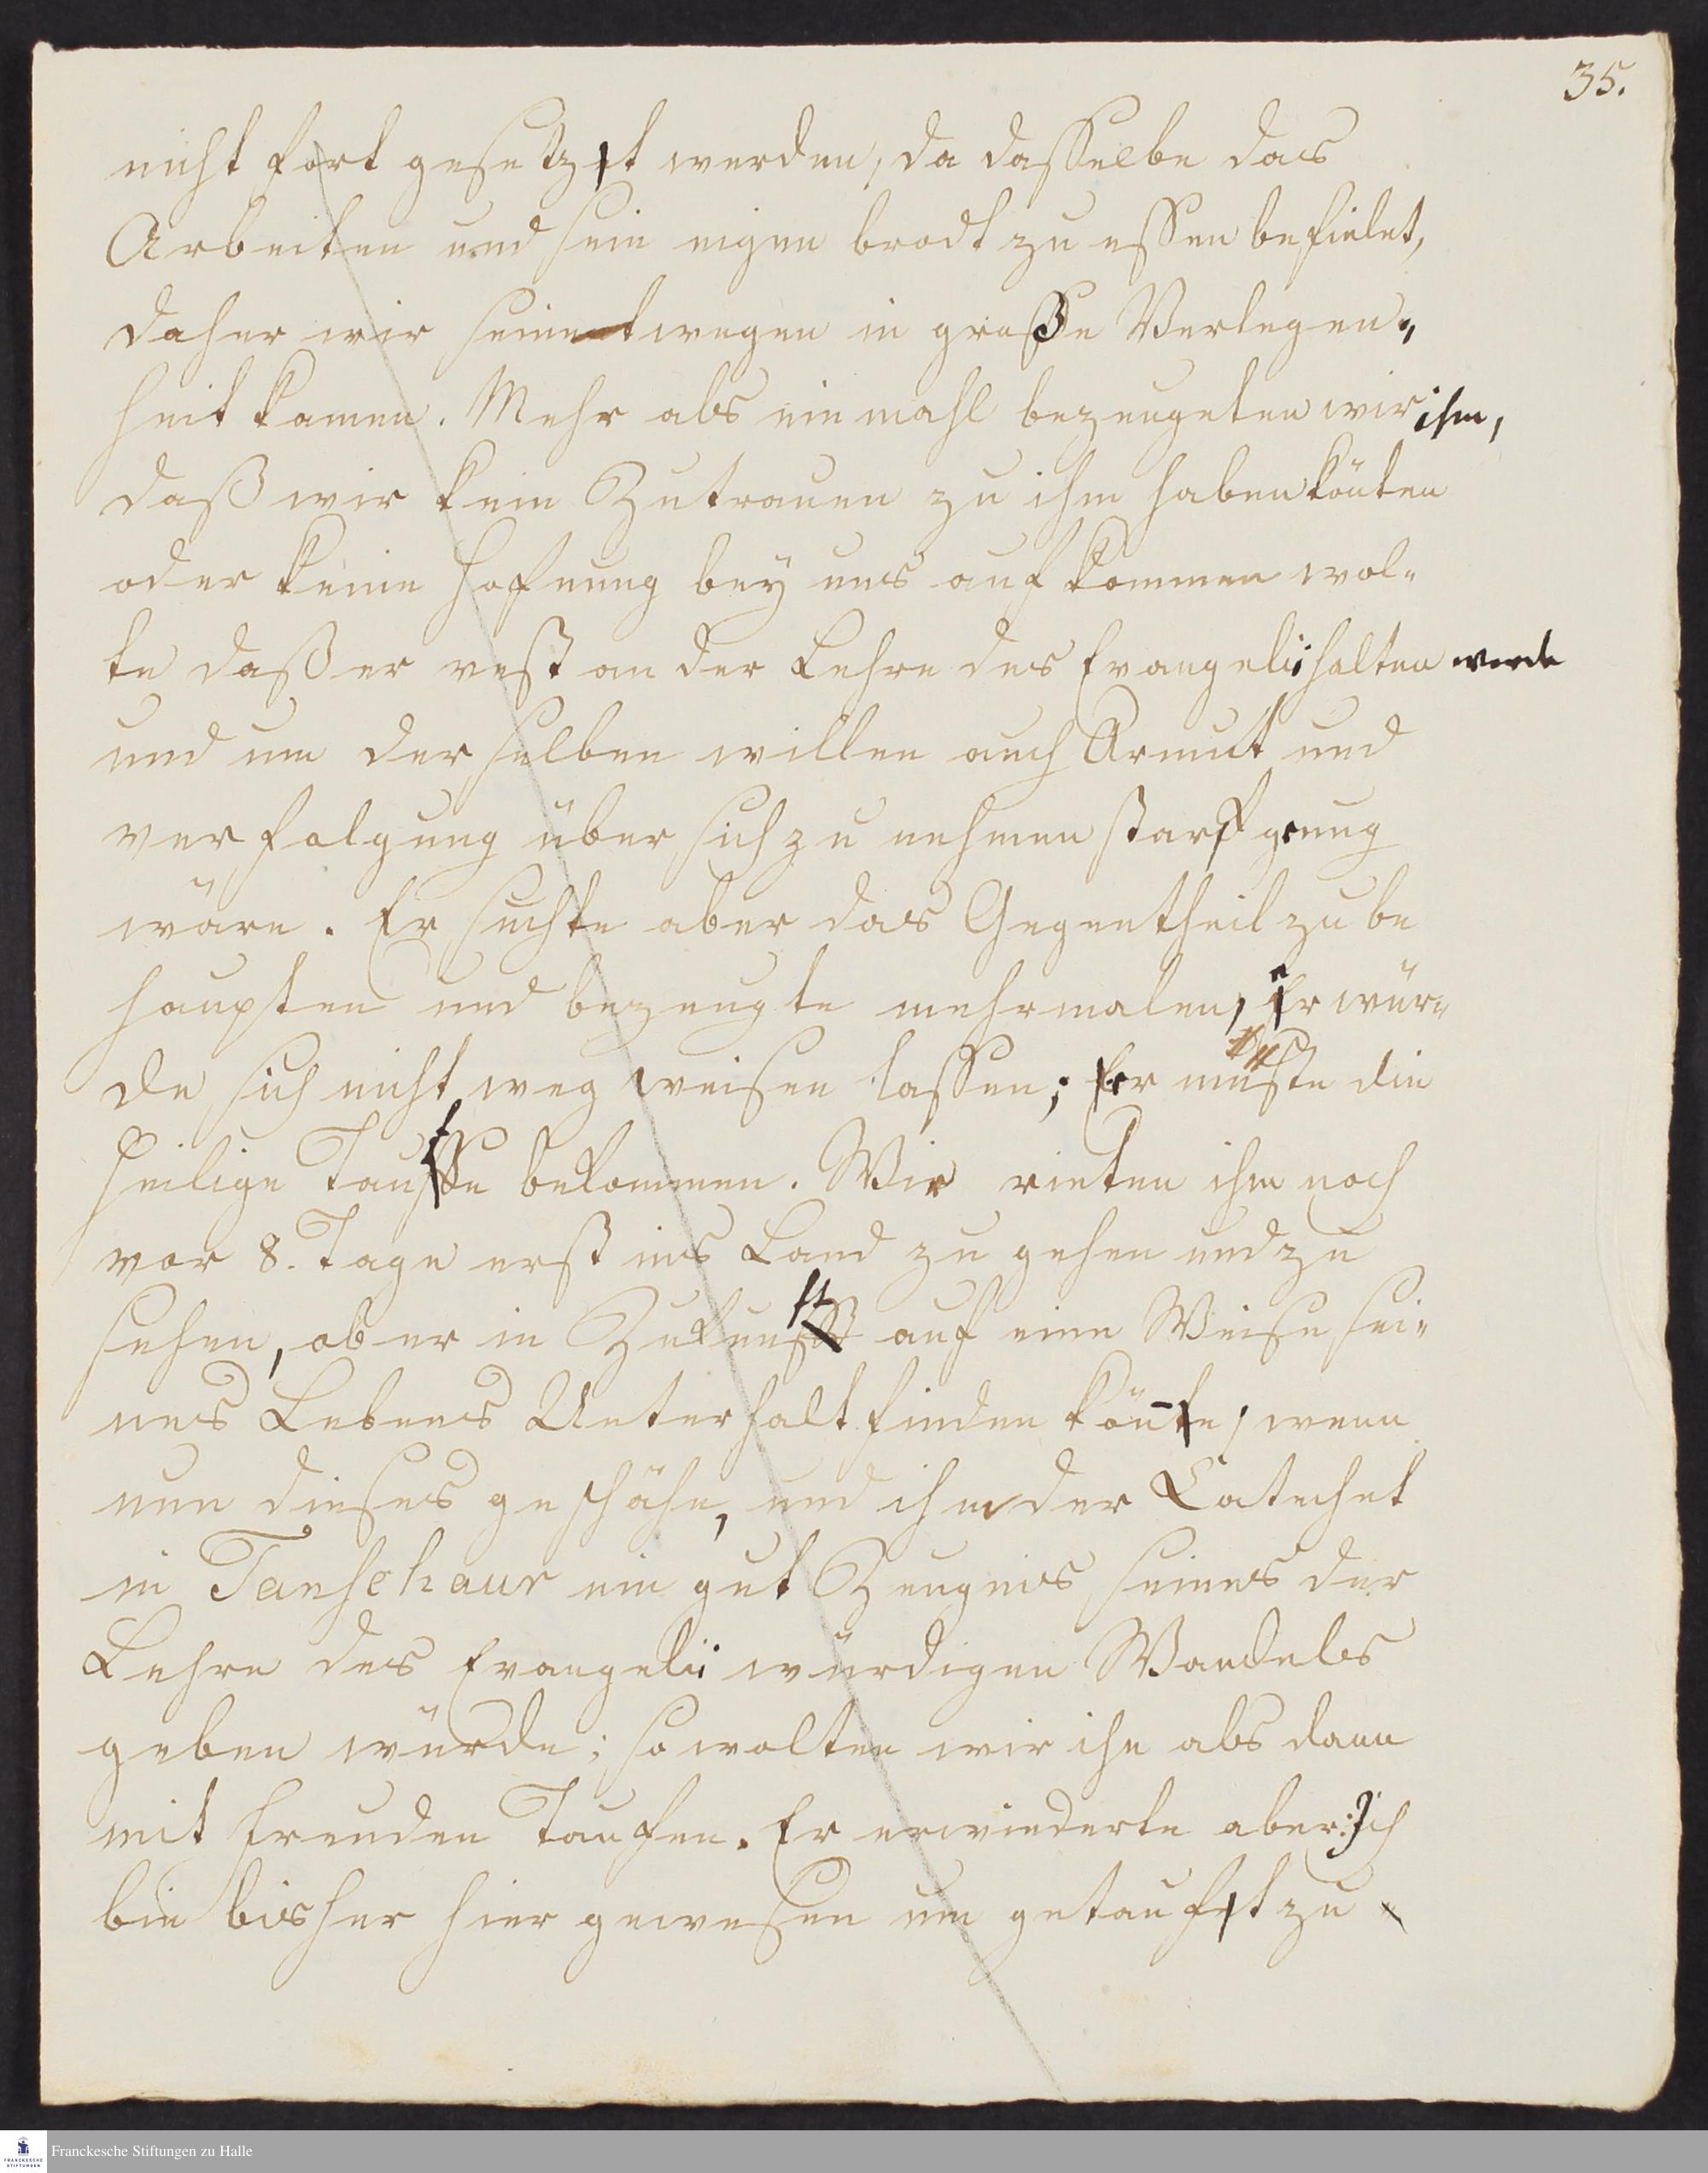 35.
nicht fort gesetzt werden, da dasselbe das
Arbeiten und sein eigen brodt zu essen befielet,
daher wir seinetwegen in große Verlegen„
heit kamen. Mehr als ein mahl bezeugeten wir ihm,
daß wir kein Zutrauen zu ihm haben könten
oder keine Hofnung bey uns auf kommen wol„
te daß er vest an der Lehre des Evangelii halten werde
und um der selben willen auch Armut und
verfolgung über sich zu nehmen stark genug
wäre. Er suchte aber das Gegentheil zu be
haupten und bezeugte mehrmalen, er wür„
de sich nicht weg weisen lassen; er müste die
Heilige Taufe bekommen. Wir rieten ihm noch
vor 8. Tage erst ins Land zu gehen und zu
sehen, ob er in Zukunft auf eine Weise sei„
nes Lebens Unterhalt finden könte, wenn
nun dieses geschähe, und ihm der Catechet
in Tanschaur ein gut Zeugnis seines der
Lehre des Evangelii würdigen Wandels
geben würde; so wolten wir ihn als dann
mit freuden Taufen. Er erwiederte aber: Ich
bin bisher hier gewesen um getauft zu
Franckesche Stiftungen zu Halle
FRANCKESCHE
STIFTUNGEN